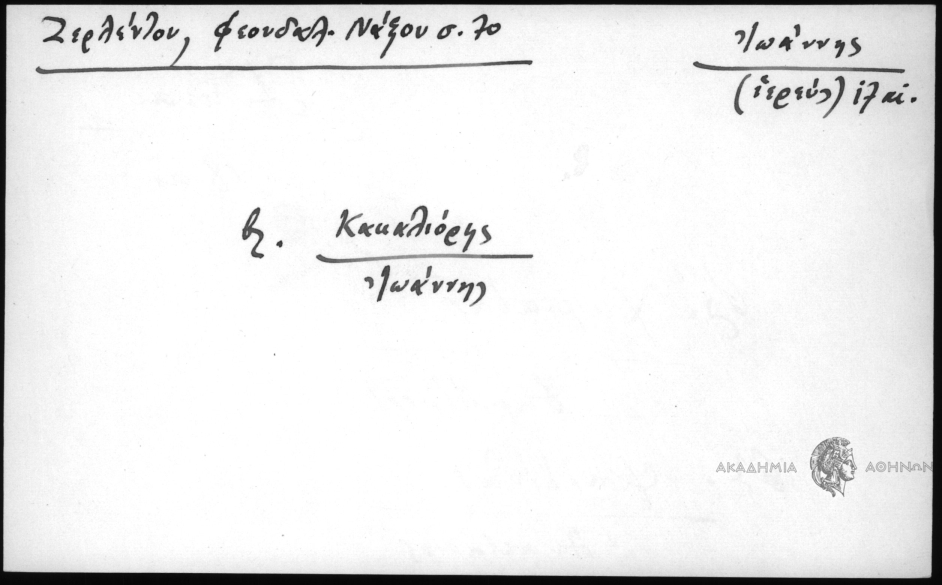 Ζερλέντου, φεουδαλ. Νάξου σ. 70
Ἰωάννης
(ἱερεύς) ιζ αἰ.
βλ. Κακαλιόρης
Ἰωάννης
ΑΚΑΔΗΜΙΑ ΑΘΗΝΩΝ